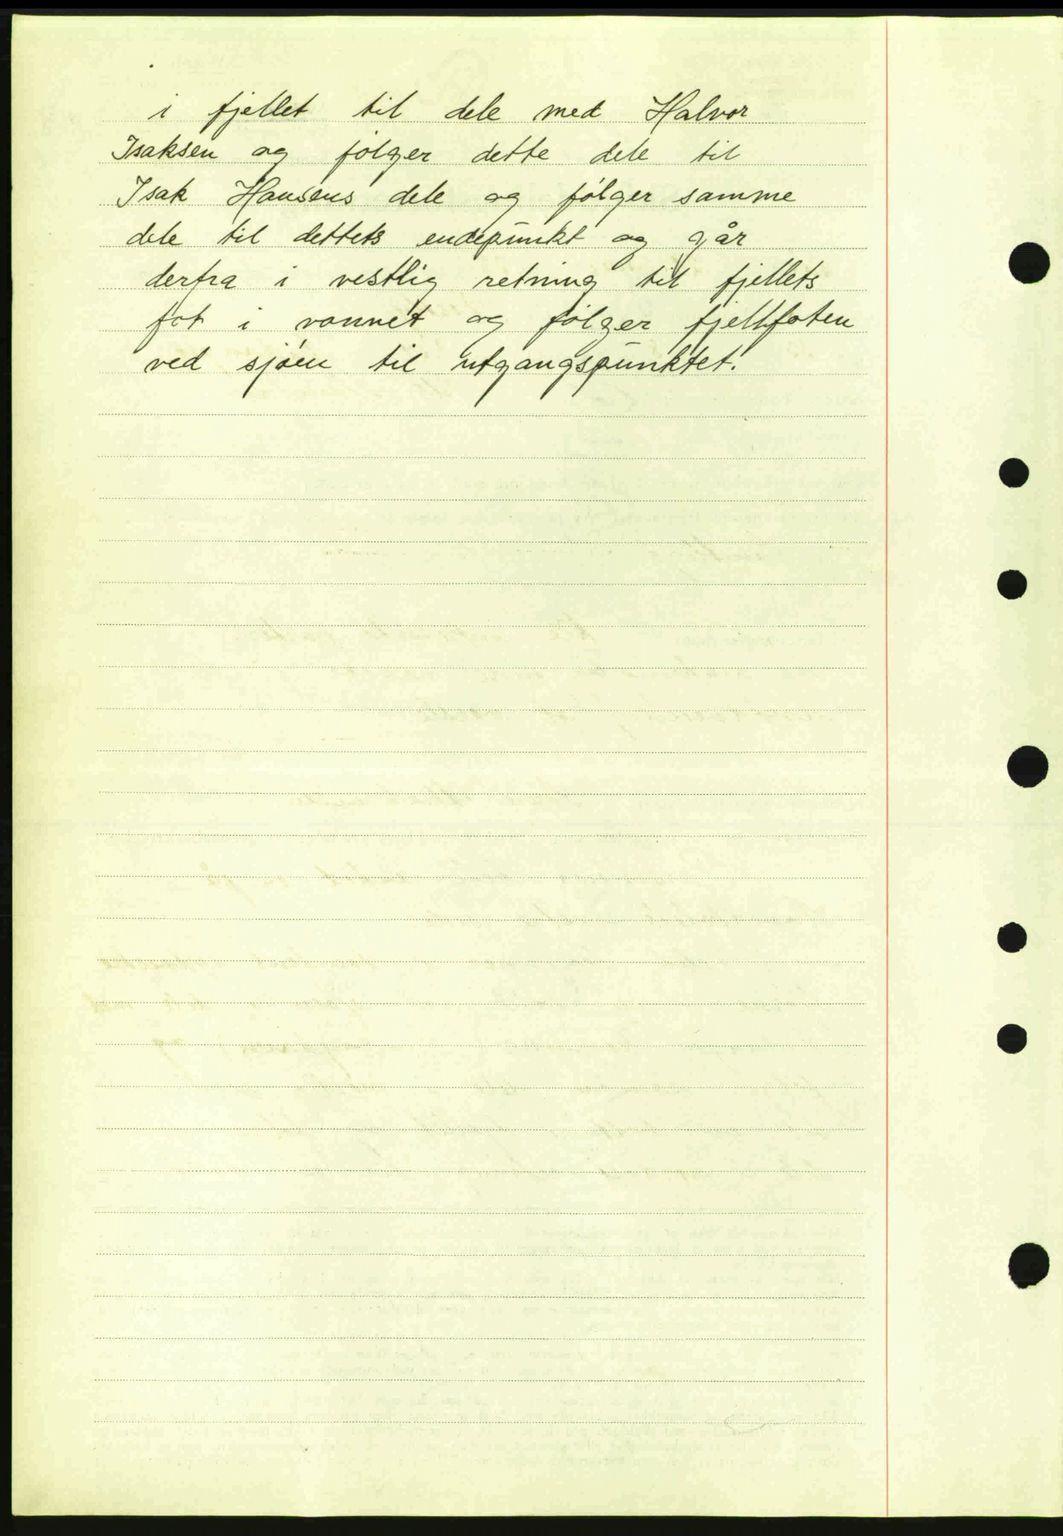 i fjellet til dele med Halvor
Isaksen og følger dette dele til
Isak Hansens dele og følger samme
dele til dettets endepunkt og går
derfra i vestlig retning til fjellets
fot i vannet og følger fjellfoten
ved sjøen til utgangspunktet.